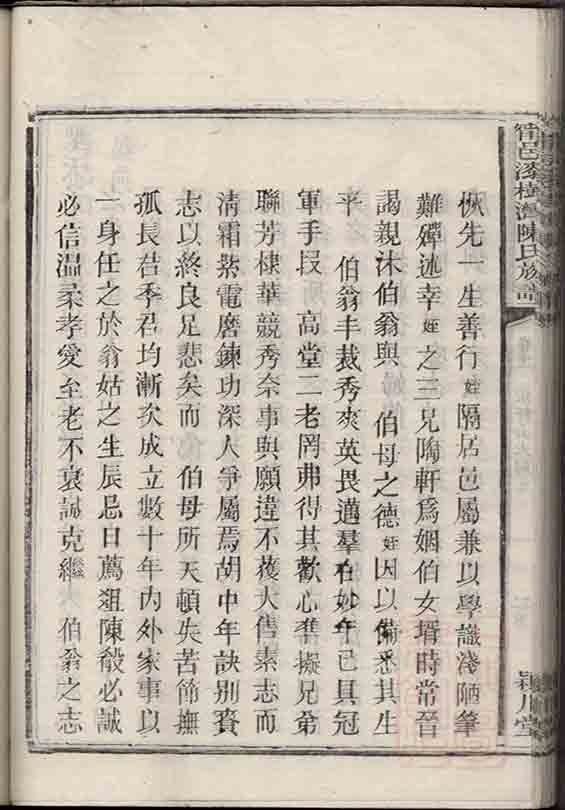 甯邑漆樹灣陳氏族譜
潁川堂
恢先一生善行姪隔居邑屬兼以學識淺陋筆
難殫述幸姪之三兄陶軒為姻伯女壻時常晉
謁親沐伯翁與 伯母之德姪因以備悉其生
平 伯翁丰裁秀爽英畏邁羣在妙年已具冠
軍手段 高堂二老罔弗得其歡心隼擬兄弟
聯芳棣華競秀奈事與願違不獲大售素志而
清霜紫電磨鍊功深人爭屬焉胡中年訣別賫
志以終良足悲矣而 伯母所天頓失苦節撫
孤長君季君均漸次成立數十年內外家事以
一身任之於翁姑之生辰忌日薦俎陳殽必誠
必信溫柔孝愛至老不衰誠克繼 伯翁之志